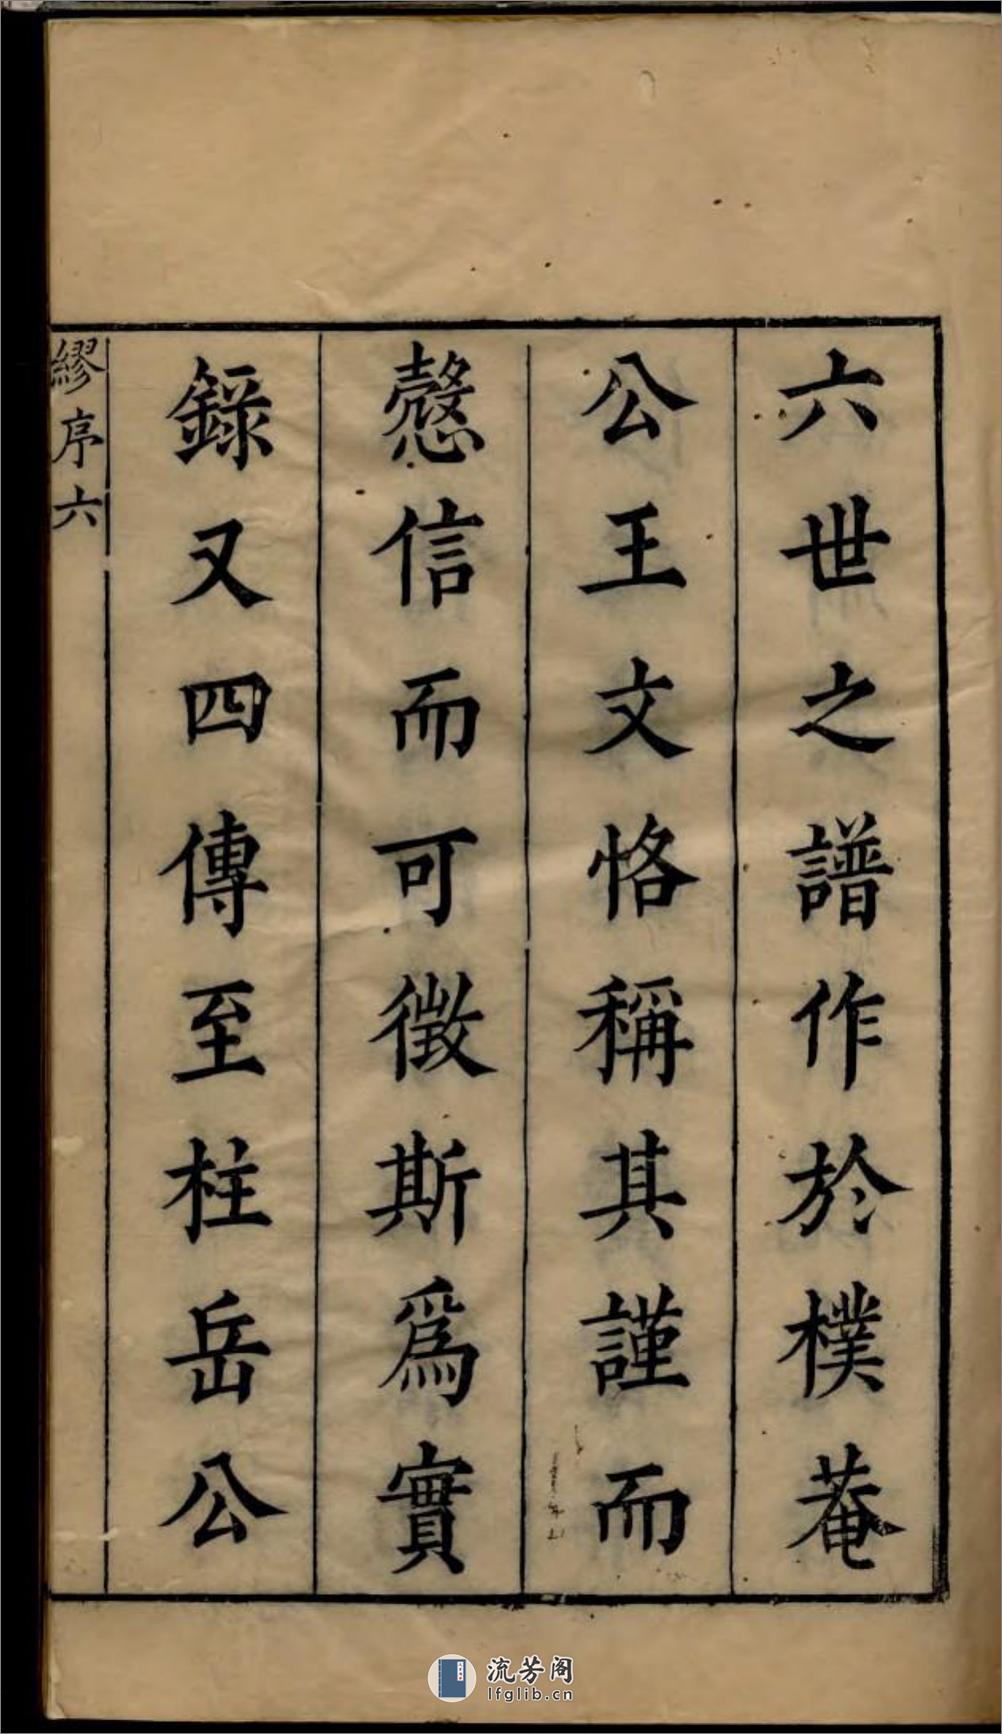 六世之譜作於樸菴
公王文恪稱其謹而
慤信而可徵斯爲實
錄又四傳至柱岳公
繆序六
流芳阁
lfglib.cn